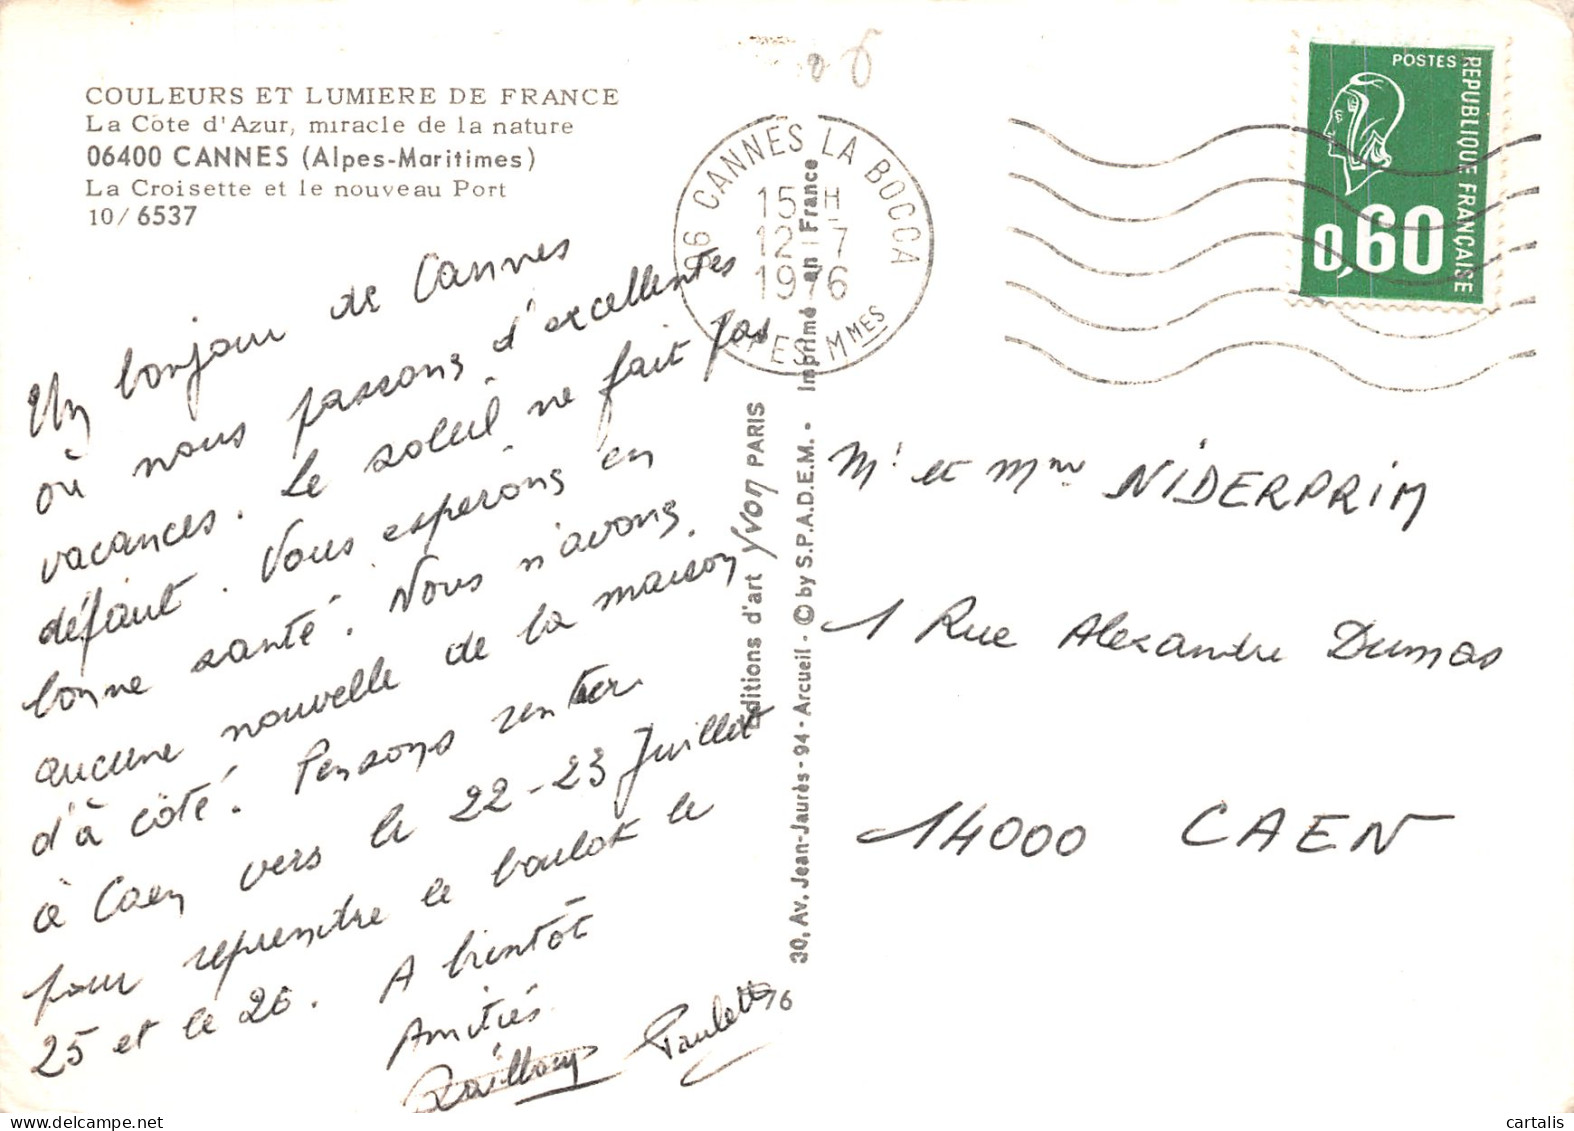 COULEURS ET LUMIERE DE FRANCE
La Côte d'Azur, miracle de la nature
06400 CANNES (Alpes-Maritimes)
La Croisette et le nouveau Port
10/6537
Un bonjour de Cannes
où nous passons d'excellentes
vacances. Le soleil ne fait pas
défaut. Vous espérons en
bonne santé. Nous n'avons
aucune nouvelle de la maison
d'à côté. Pensons rentrer
à Caen vers le 22-23 Juillet
pour reprendre le boulot le
25 et le 26. A bientôt
Amitiés
Paulette
06 CANNES LA BOCCA
15 H
12-7
1976
ALPES Mmes
Editions d'art Yvon PARIS
30, Av. Jean-Jaurès - 94 - Arcueil - © by S.P.A.D.E.M. - Imprimé en France
76
POSTES
REPUBLIQUE FRANÇAISE
0,60
Mr et Mme NIDERPRIM
1 Rue Alexandre Dumas
14000 CAEN
cartalis.com